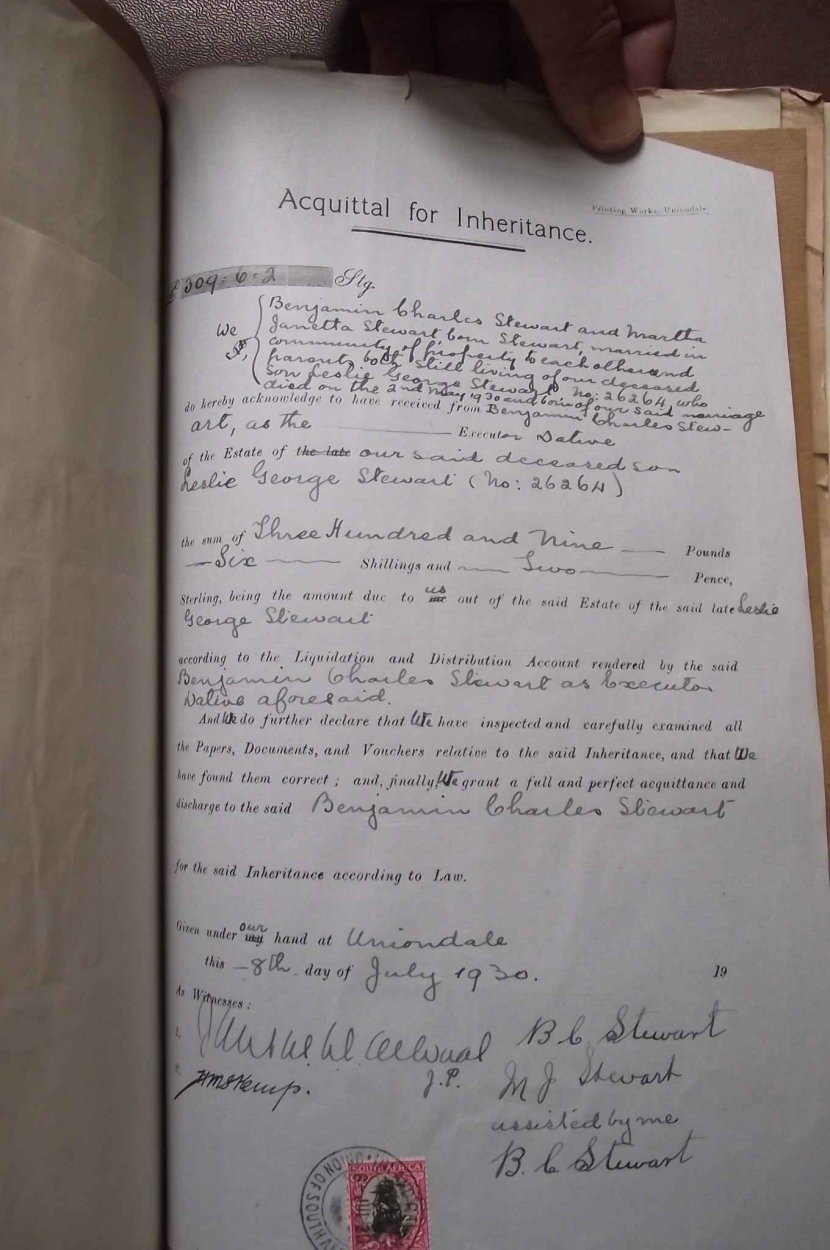 Acquittal for Inheritance.
Printing Works, Uniondale.
£309=6=2 Stg.
Benjamin Charles Stewart and Martha
We Janetta Stewart, born Stewart, married in
community of property to each other and
parents both still living of our deceased
Son Leslie George Stewart No: 26264, who
died on the 2nd May 1930 and born of our said marriage
do hereby acknowledge to have received from Benjamin Charles Stew-
art, as the Executor Dative
of the Estate of the late our said deceased son
Leslie George Stewart (No: 26264)
the sum of Three Hundred and Nine Pounds
Six Shillings and Two Pence,
Sterling, being the amount due to us out of the said Estate of the said late Leslie
George Stewart
according to the Liquidation and Distribution Account rendered by the said
Benjamin Charles Stewart as Executor
Dative aforesaid.
And We do further declare that We have inspected and carefully examined all
the Papers, Documents, and Vouchers relative to the said Inheritance, and that We
have found them correct; and, finally, We grant a full and perfect acquittance and
discharge to the said Benjamin Charles Stewart
for the said Inheritance according to Law.
Given under our my hand at Uniondale
this 8th day of July 1930. 19
As Witnesses:
1. B. C. Stewart
J.P. M J Stewart
assisted by me
B. C Stewart
UNION OF SOUTH
SOUTH AFRICA